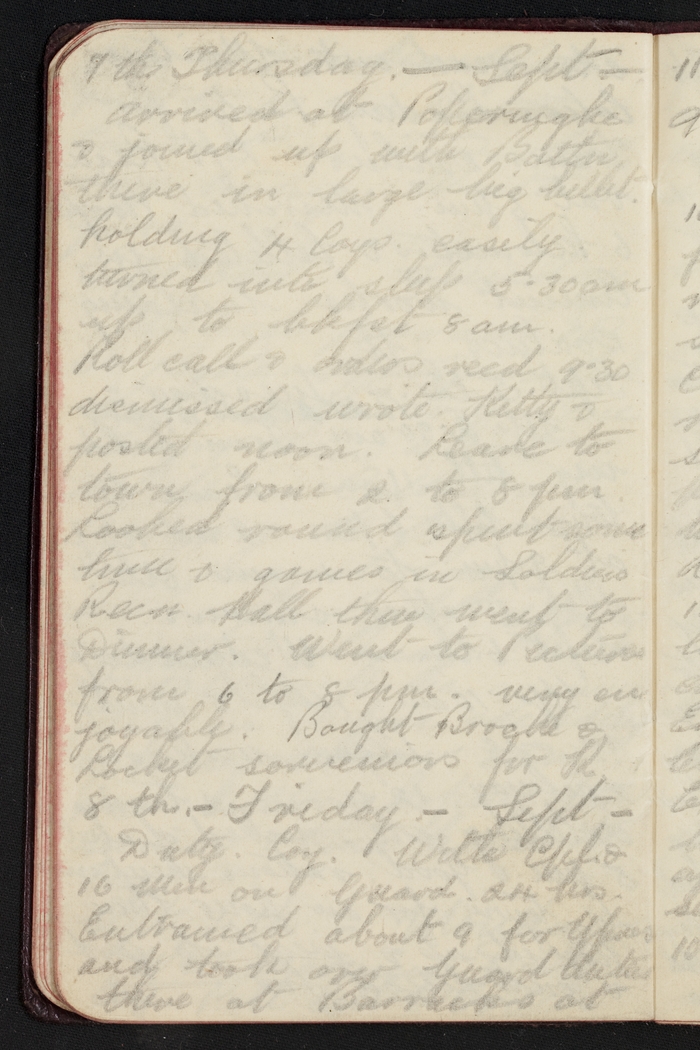 7th Thursday. — Sept —
arrived at Poperinghe
& joined up with Battn
there in large big billet.
holding 4 Coys. easily.
turned into sleep 5.30am
up to bkfst 8 am.
Roll call & orders recd 9.30
dismissed wrote Kitty &
posted noon. Leave to
town from 2 to 8 pm.
Looked round spent some
time & games in Soldiers
Recn. Hall then went to
Dinner. Went to Pictures
from 6 to 8 pm. very en
joyable. Bought Broche &
Locket souveniors for K
8th. - Friday - Sept -
Duty. Coy. With Cpl. &
16 Men on Guard. 24 hrs.
Entrained about 9 for Ypres
and took over Guard duties
there at Barracks at